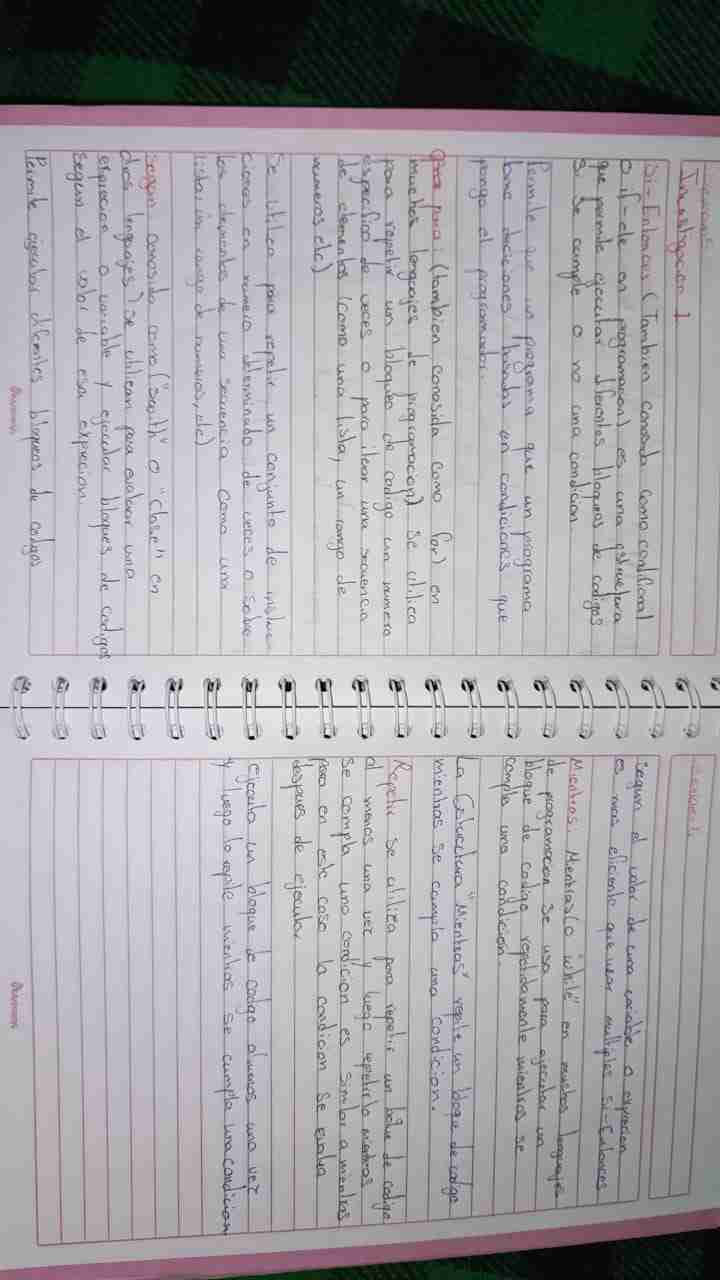 Investigacion 1
Si-Entonces (Tambien conosida como condicional
o if-ele en programacion) es una estructura
que permite ejecutar diferentes bloques de codigos
si se cumple o no una condicion.
Permite que un programa que un programa
tome deciciones basadas en condiciones que
ponga el programador.
para: (tambien conosida como for) en
muchos lenguajes de programacion) se utilica
para repetir un bloqueo de codigo un numero
especifico de veces o para iterar una secuencia
de elementos (como una lista, un rango de
numeros etc)
Se utiliza para repetir un conjunto de instuc-
ciones en numero determinado de veces o sobre
los elementos de una secuencia como una
lista, un rango de numeros, etc)
Segun conosido como ("swith" o "Chose" en
otros lenguajes) se utilican para evaluar una
exprecion o variable y ejecutar bloques de codigos
segun el valor de esa exprecion
Permite ejecutar difentes bloqeos de codigos
segun el valor de una variable o exprecion
es mas eficiente que usar multiples si-Entonces
Mientras. Mientras (o "while" en muchos lenguajes
de programacion se usa para ejecutar un
bloque de codigo repetidamente mientras se
cumpla una condicion.
La Estructura "Mientras" repite un bloque de codigo
mientras se cumpla una condicion.
Repetir se utilica para repetir un bolque de codigo
al menos una vez y luego repetirlo mientras
se compla una condicion es similar a mientras
pero en este caso la condicion se evalua
despues de ejecutar.
ejecuta un bloque de codigo almenos una vez
y luego lo repite mientras se cumpla una condicion